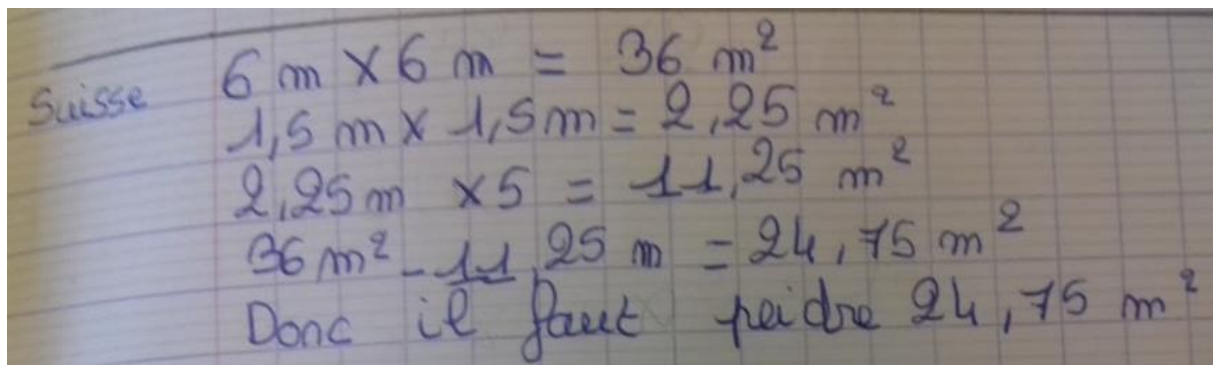 6 m × 6 m = 36 m²
Suisse
1,5 m × 1,5 m = 2,25 m²
2,25 m × 5 = 11,25 m²
36 m² - 11,25 m = 24,75 m²
Donc il faut peidre 24,75 m²